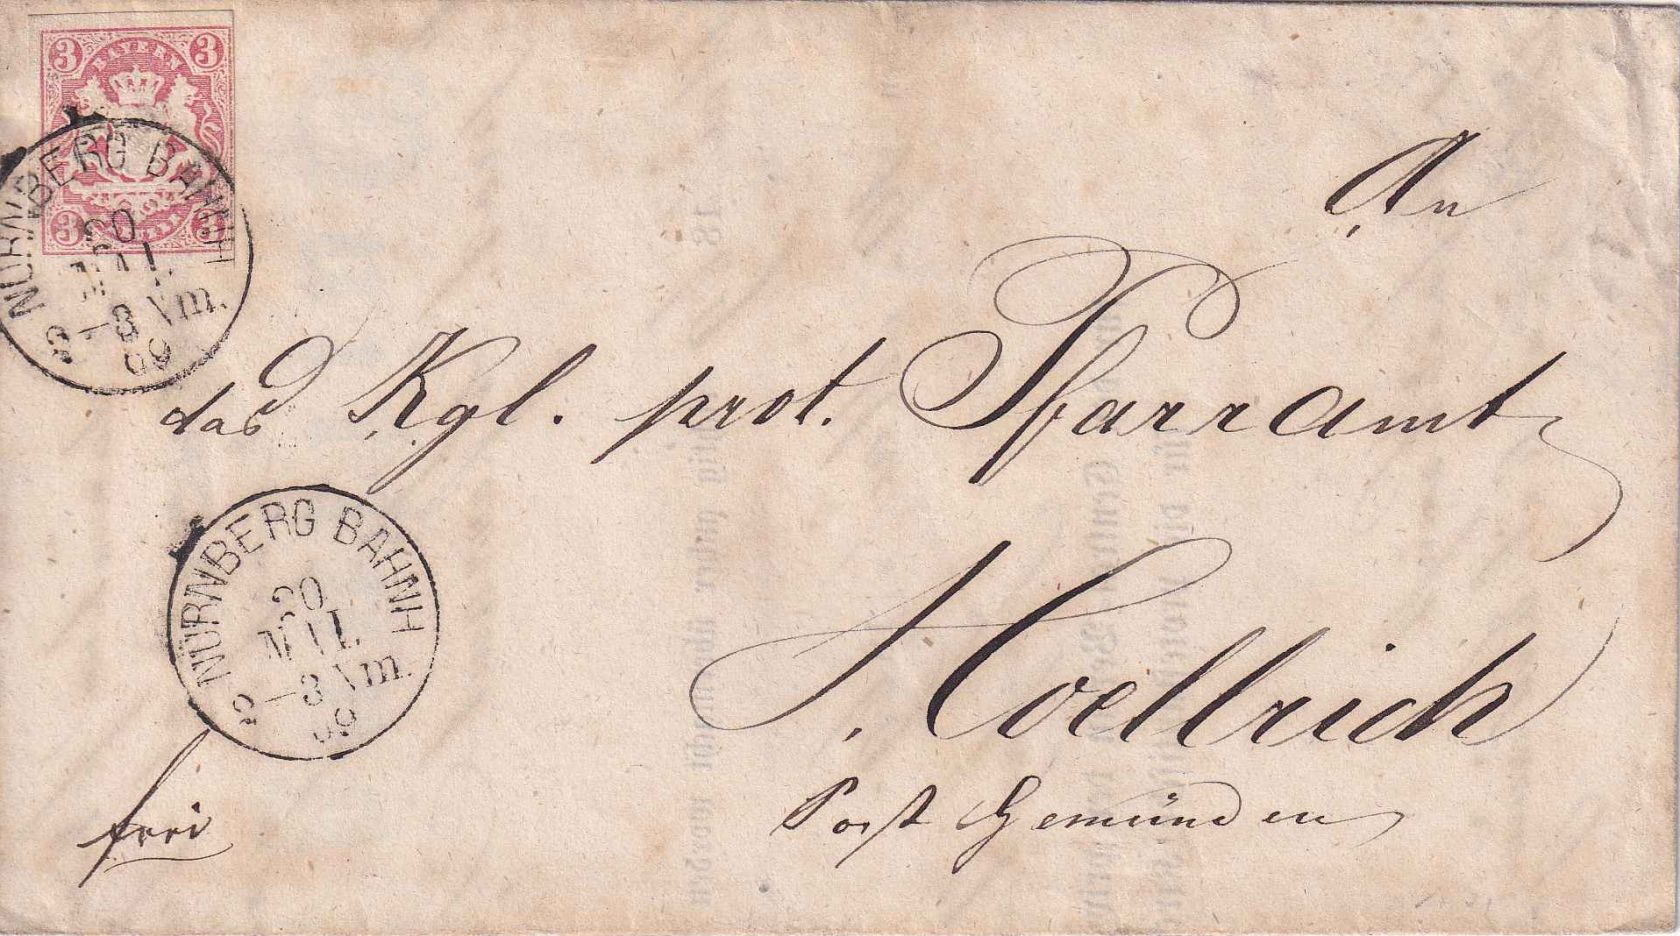 3 BAYERN 3
3 3
NÜRNBERG BAHNH
20
2–3 Nm.
An
das Kgl. prot. Pfarramt
Hoellrich
Post Gemünden
NÜRNBERG BAHNH
20
2–3 Nm.
frei